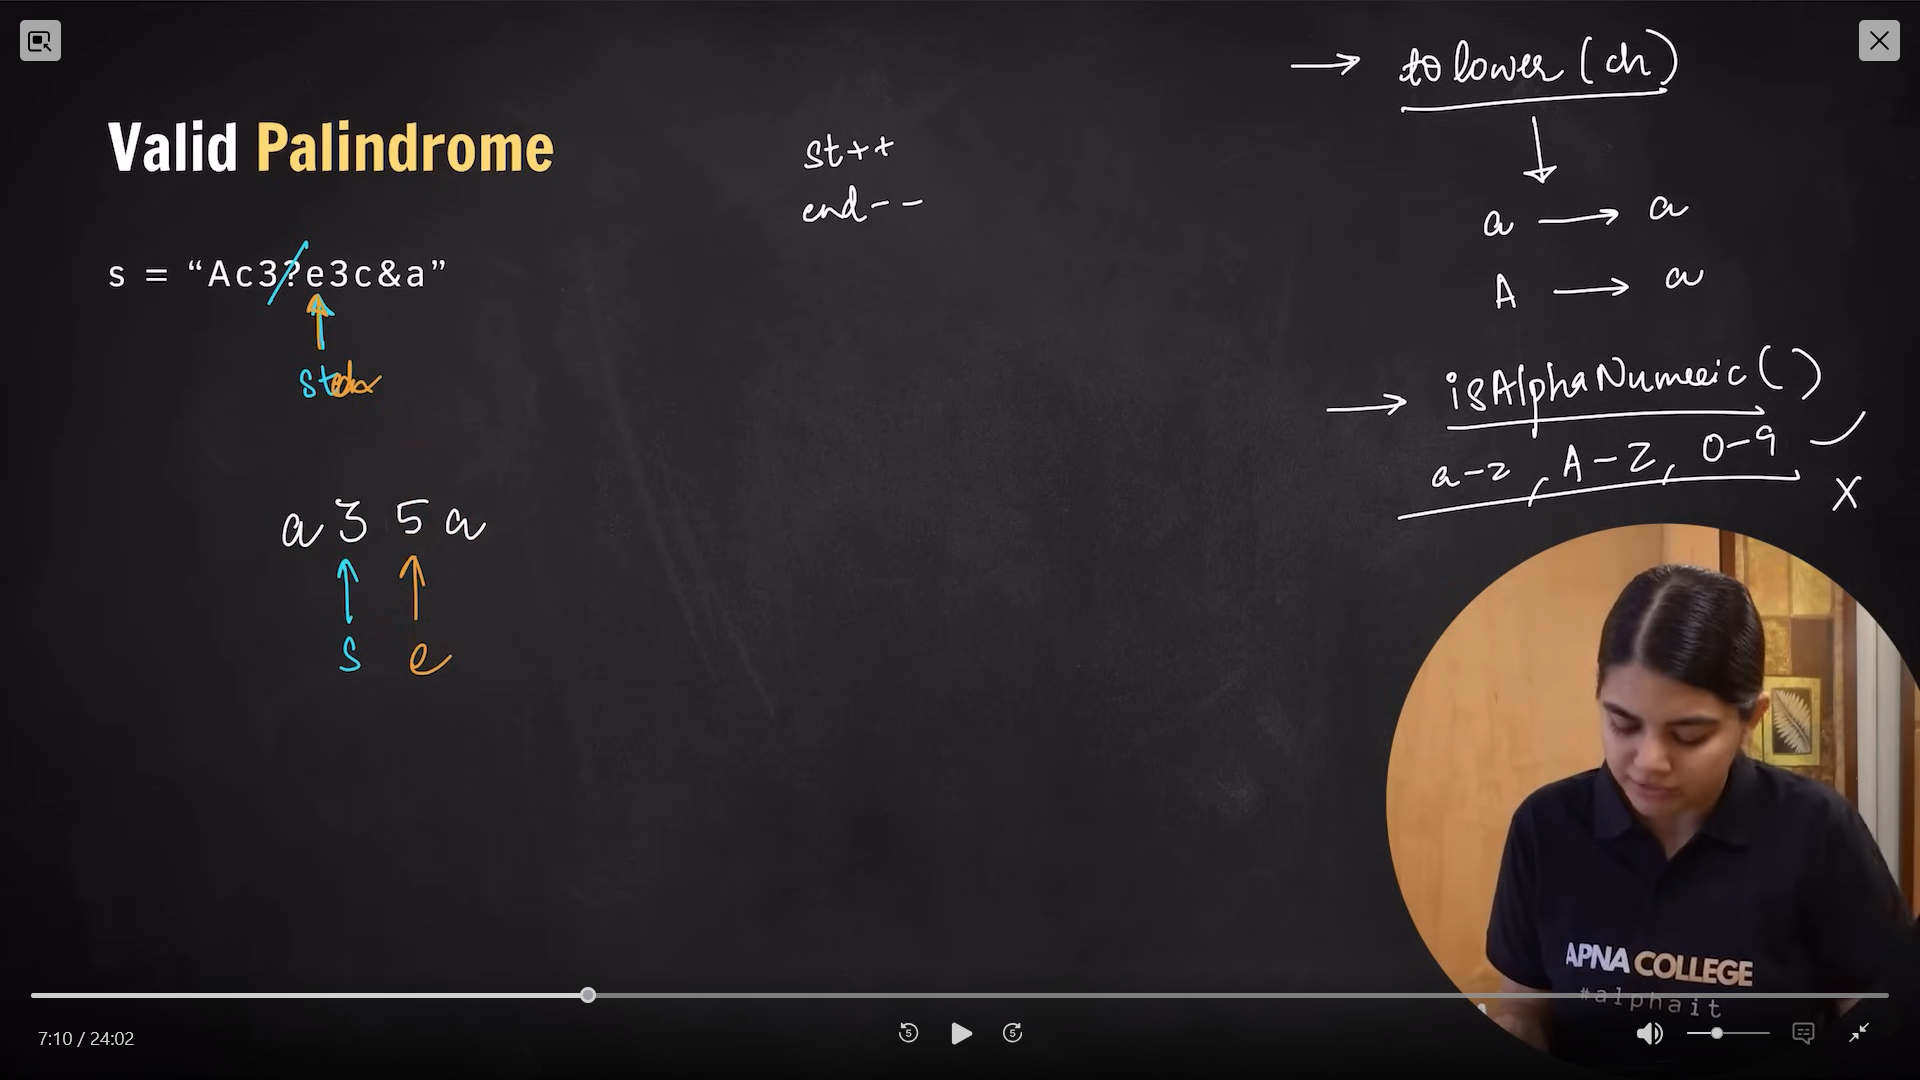 Valid Palindrome
s = “Ac3?e3c&a”
st
a 3 5 a
s e
st++
end--
→ tolower(ch)
a → a
A → a
→ isAlphaNumeric()
a-z, A-Z, 0-9 ✓
X
APNA COLLEGE
#alphait
7:10 / 24:02
5
5